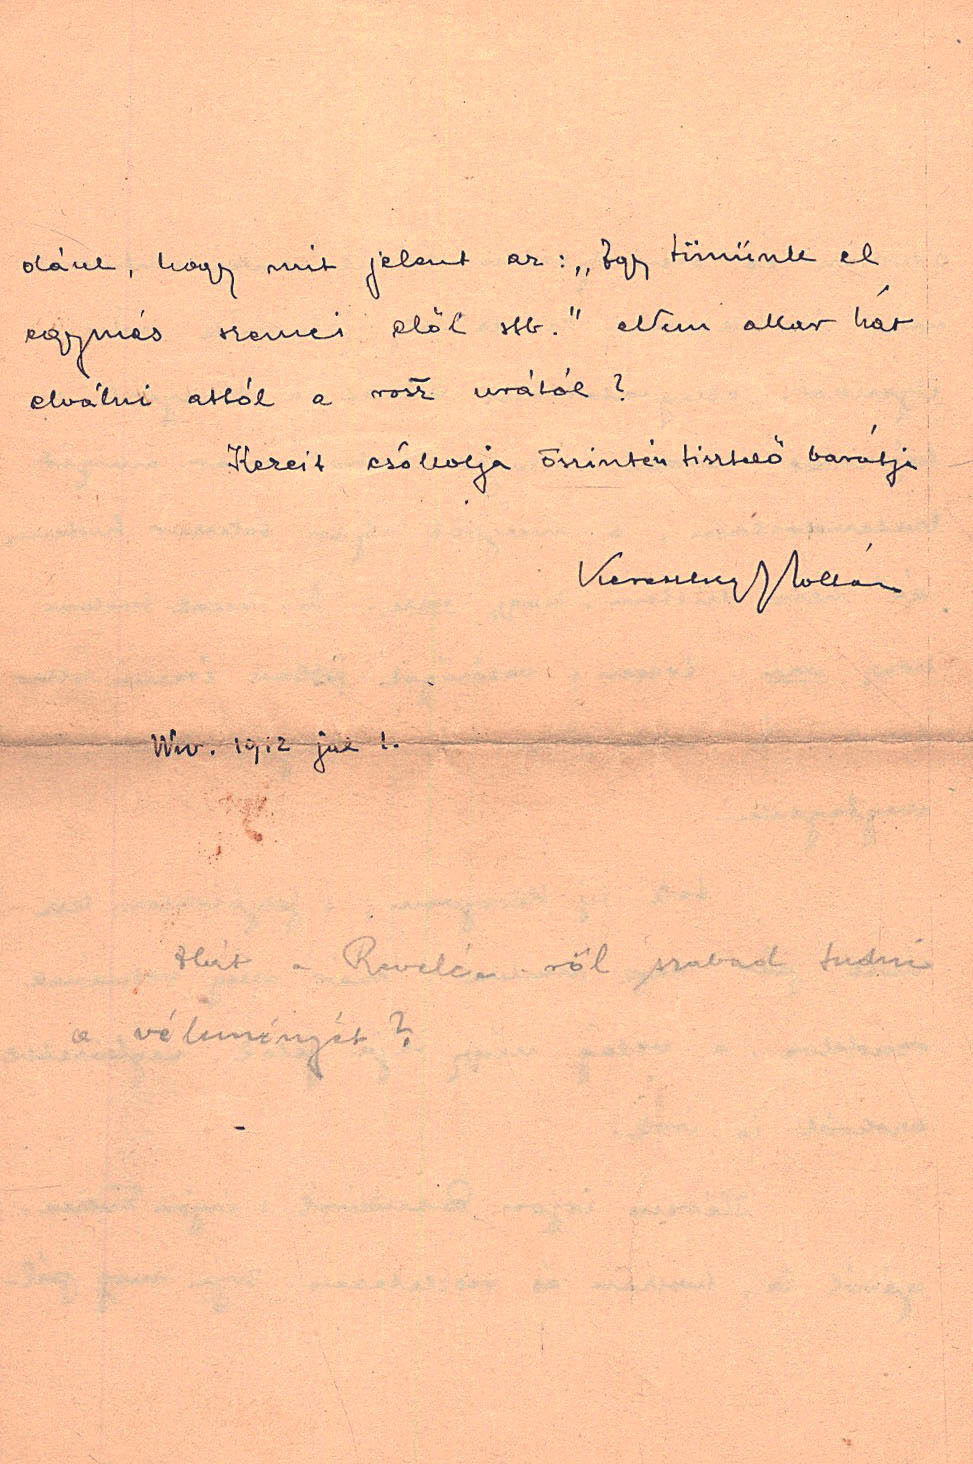 dául, hogy mit jelent az: „Így tününk el
egymás szemei elől stb." Nem akar hát
elválni attól a rossz urától?
Kezeit csókolja őszintén tisztelő barátja
Zoltán
1912 jul 1.
Hát a ről szabad tudni
a véleményét?